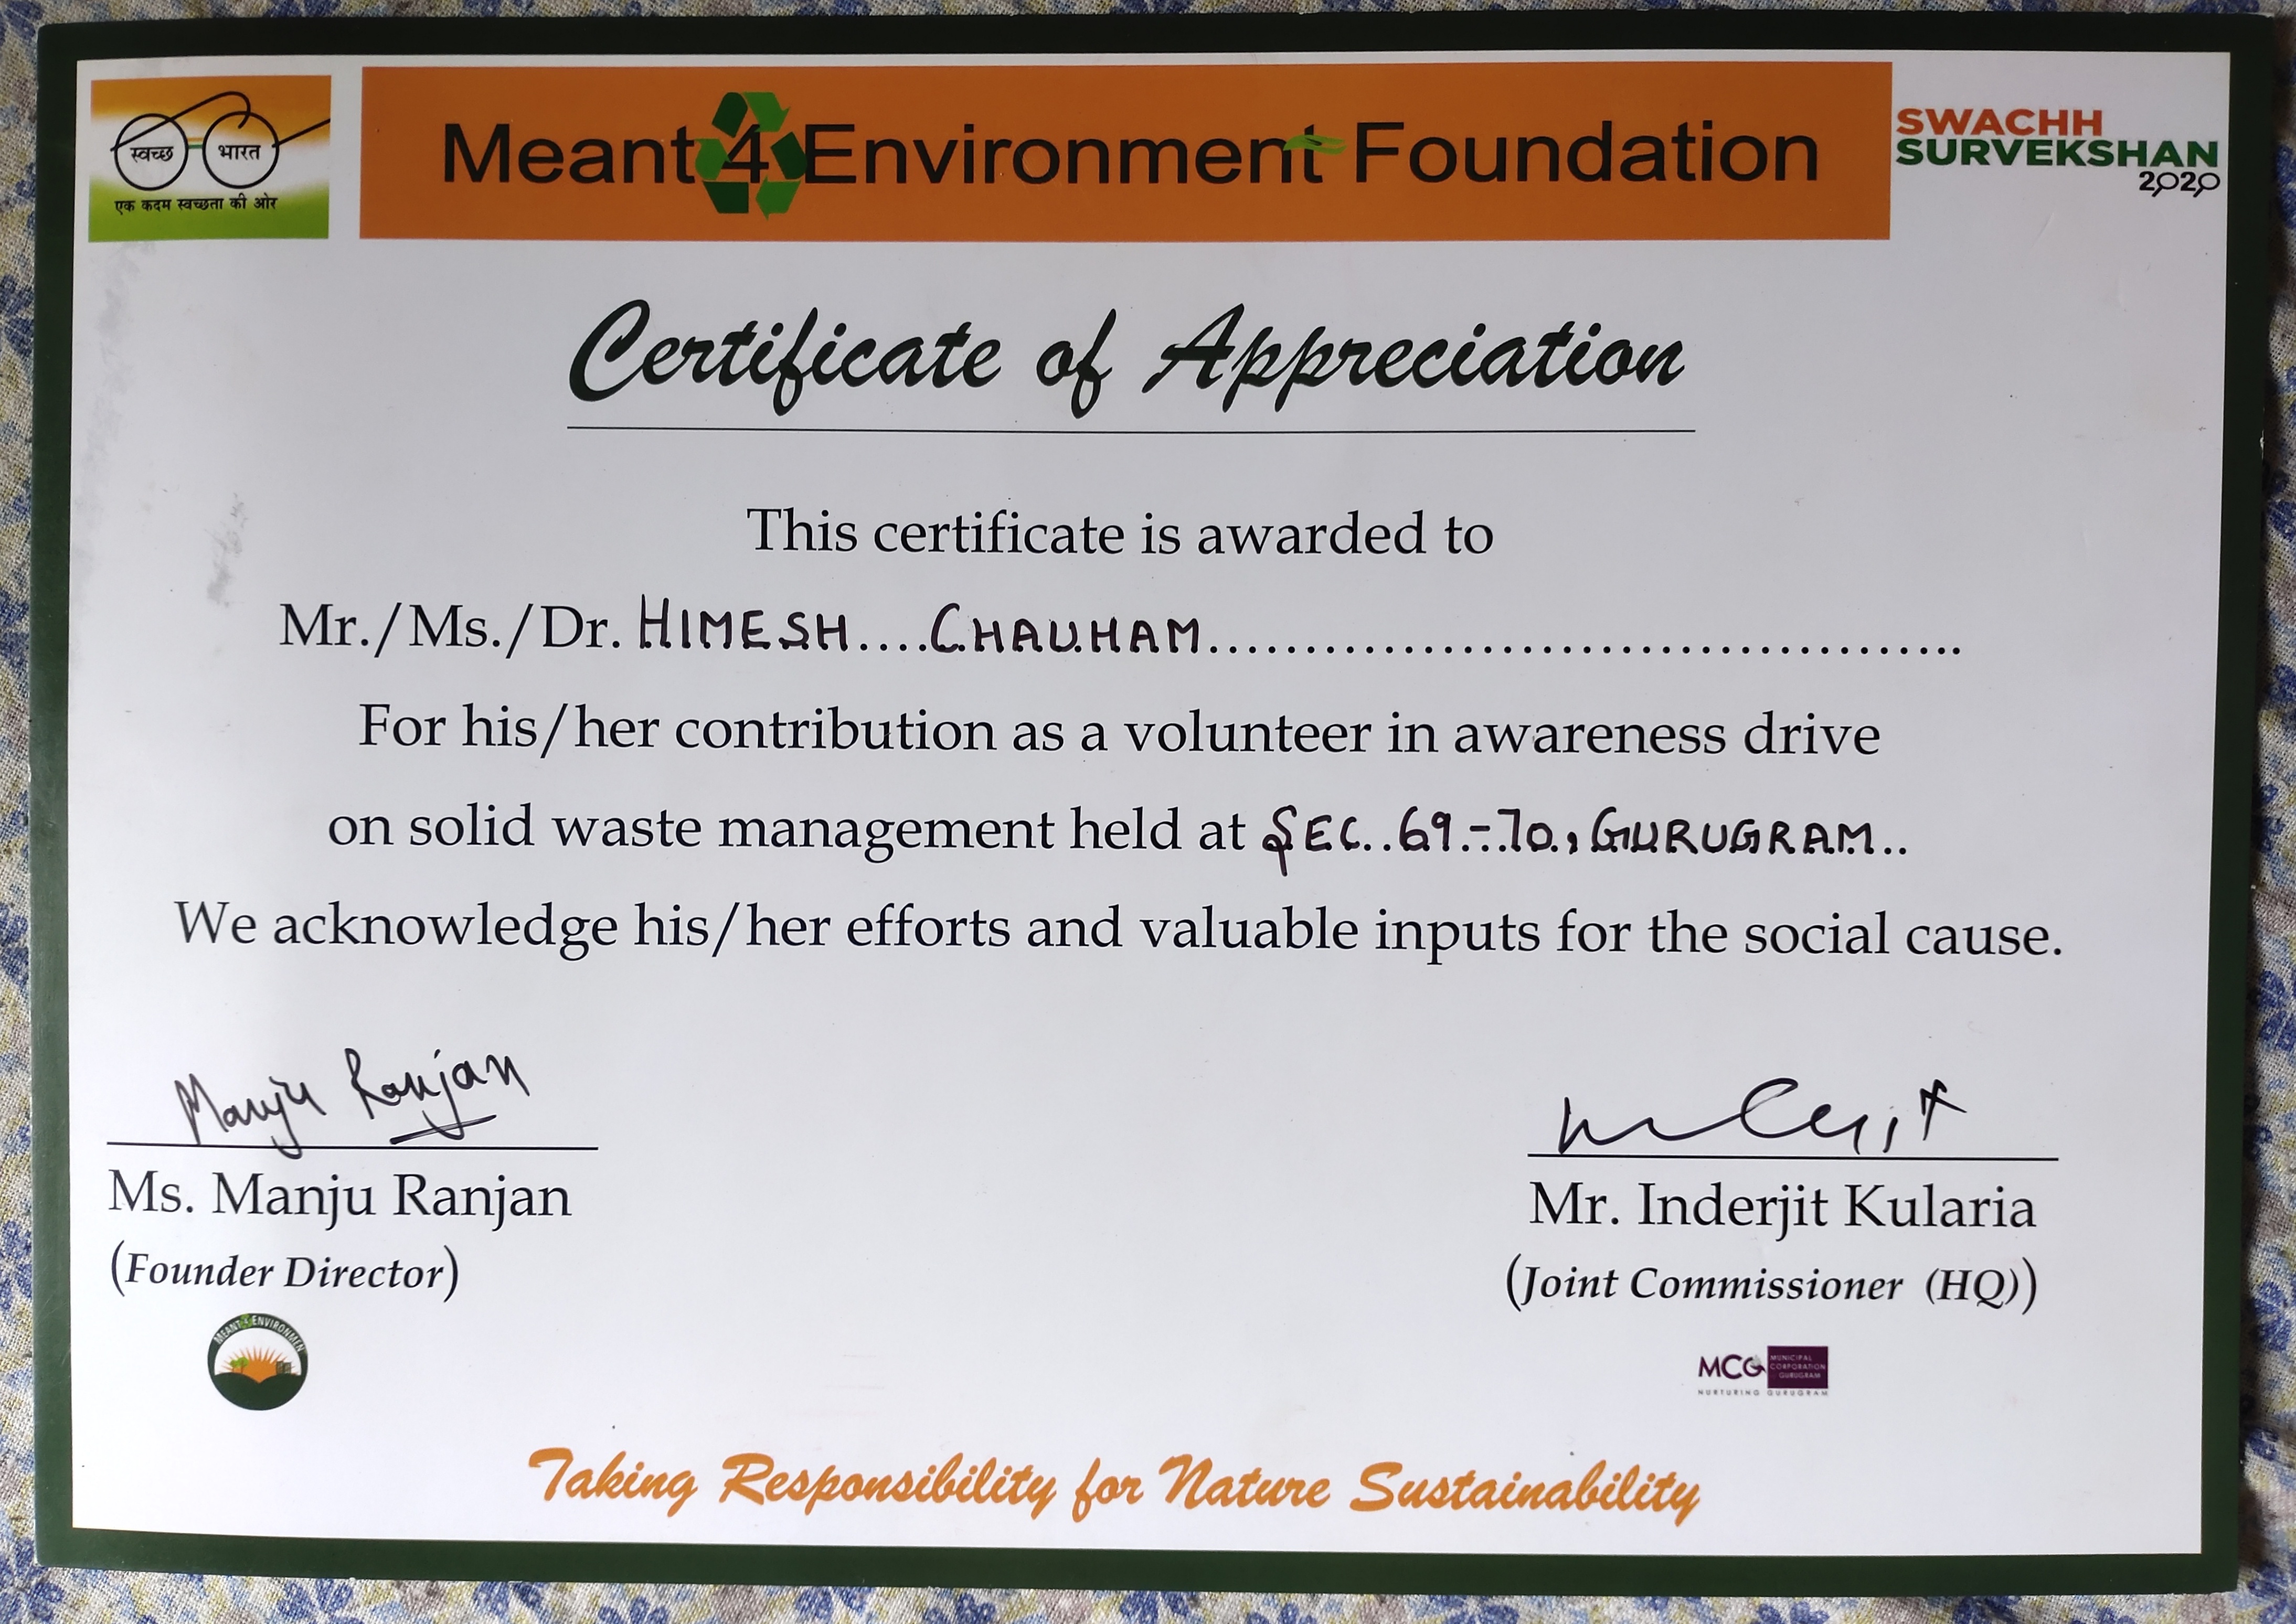 स्वच्छ भारत
एक कदम स्वच्छता की ओर
Meant 4 Environment Foundation
SWACHH
SURVEKSHAN
2020
Certificate of Appreciation
This certificate is awarded to
Mr./Ms./Dr. HIMESH....CHAUHAM.......................................
For his/her contribution as a volunteer in awareness drive
on solid waste management held at SEC..69.-.70., GURUGRAM..
We acknowledge his/her efforts and valuable inputs for the social cause.
Manju Ranjan
Ms. Manju Ranjan
(Founder Director)
MEANT 4 ENVIRONMEN
Mr. Inderjit Kularia
(Joint Commissioner (HQ))
MCG MUNICIPAL
CORPORATION
GURUGRAM
NURTURING GURUGRAM
Taking Responsibility for Nature Sustainability